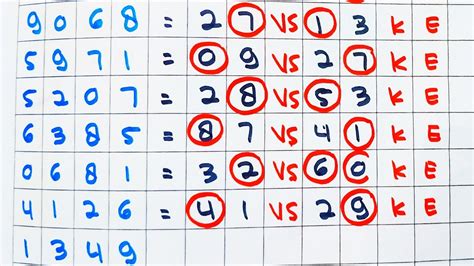 9068 = 27 VS 13 KE
5971 = 09 VS 27 KE
5207 = 28 VS 53 KE
6385 = 87 VS 41 KE
0681 = 32 VS 60 KE
4126 = 41 VS 29 KE
1349